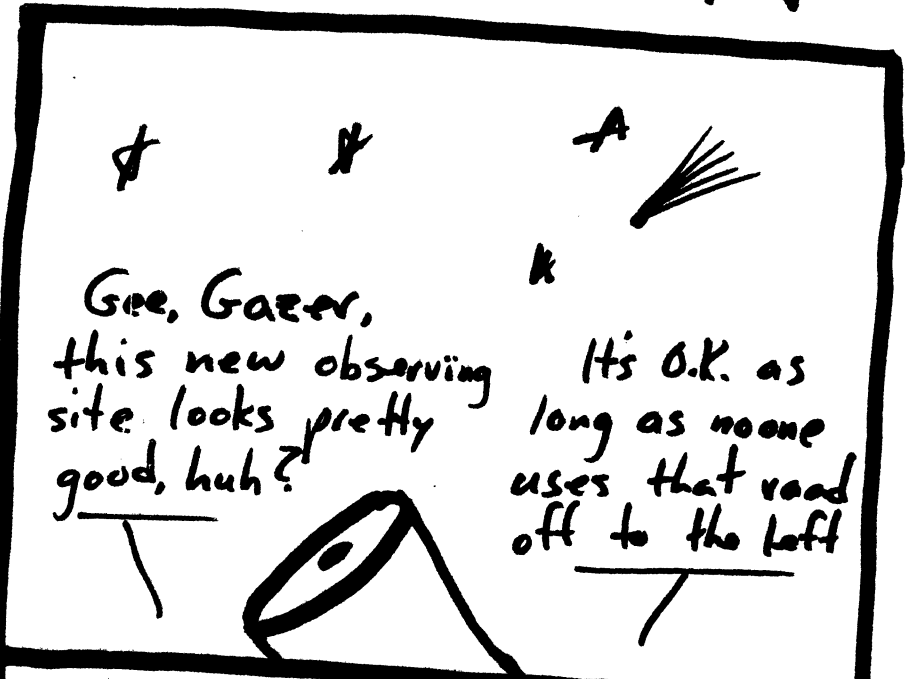 Gee, Gazer,
this new observing
site looks pretty
good, huh?
It's O.K. as
long as noone
uses that road
off to the left